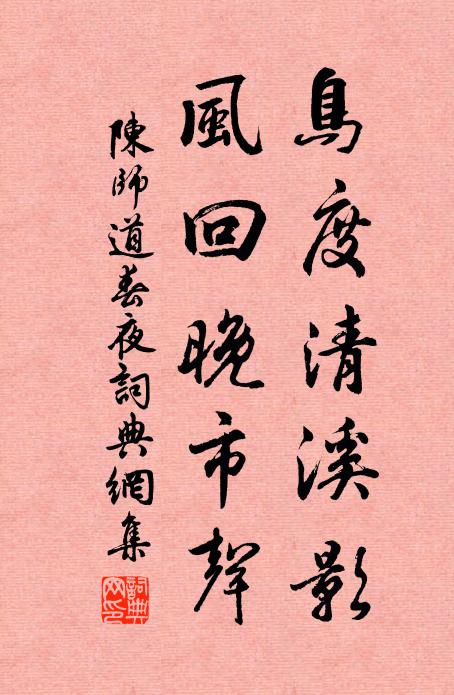 鳥度清溪影
風回晚市聲
陳師道春夜詞典網集
詞典网印